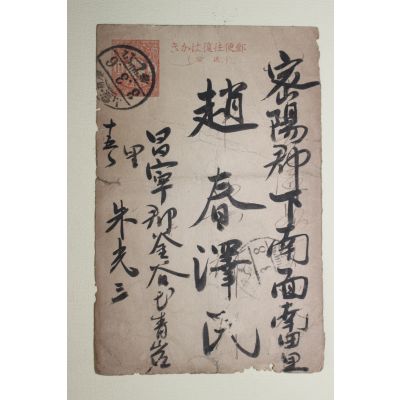 郵便往復はかき
密陽郡下南面南田里
趙春澤氏
昌寧郡釜谷
里
朱光三
十五